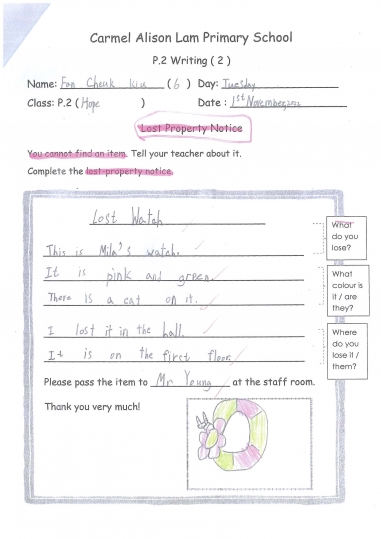 Carmel Alison Lam Primary School
P.2 Writing ( 2 )
Name: Fan Cheuk Kiu ( 6 ) Day: Tuesday
Class: P.2 ( Hope ) Date : 1st November, 2022
Lost Property Notice
You cannot find an item. Tell your teacher about it.
Complete the lost property notice.
Lost Watch
What do you lose?
This is Mila's watch.
It is pink and green.
What colour is it / are they?
There is a cat on it.
I lost it in the hall.
Where do you lose it / them?
It is on the first floor.
Please pass the item to Mr Young at the staff room.
Thank you very much!